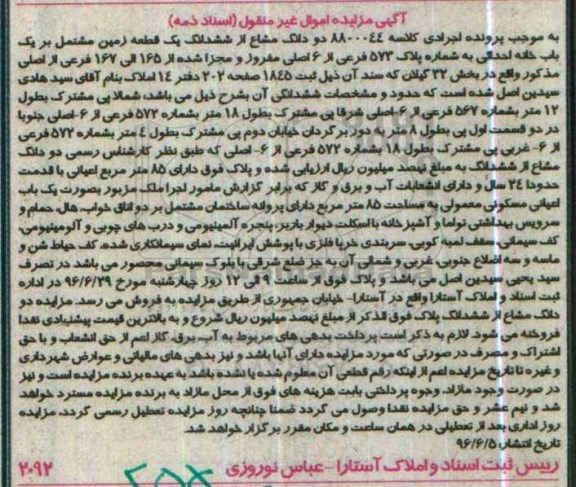 آگهی مزایده اموال غیر منقول (اسناد ذمه)
به موجب پرونده اجرائی کلاسه ۸۸۰۰۰۴۴ دو دانگ مشاع از ششدانگ یک قطعه زمین مشتمل بر یک
باب خانه احداثی به شماره پلاک ۵۷۳ فرعی از ۶ اصلی مفروز و مجزا شده از ۱۶۵ الی ۱۶۷ فرعی از اصلی
مذکور واقع در بخش ۳۲ گیلان که سند آن ذیل ثبت ۱۸۴۵ صفحه ۲۰۲ دفتر ۱۴ املاک بنام آقای سید هادی
سیدین اصل شده است که حدود و مشخصات ششدانگی آن بشرح ذیل می باشد: شمالا پی مشترک بطول
۱۲ متر بشماره ۵۶۷ فرعی از ۶-اصلی شرقا پی مشترک بطول ۱۸ متر بشماره ۵۷۲ فرعی از ۶-اصلی جنوبا
در دو قسمت اول پی بطول ۸ متر به دور برگردان خیابان دوم پی مشترک بطول ٤ متر بشماره ۵۷۲ فرعی
از ۶- غربی پی مشترک بطول ۱۸ بشماره ۵۷۲ فرعی از ۶- اصلی که طبق نظر کارشناس رسمی دو دانگ
مشاع از ششدانگ به مبلغ نهصد میلیون ریال ارزیابی شده و پلاک فوق دارای ۸۵ متر مربع اعیانی با قدمت
حدودا ۲٤ سال و دارای انشعابات آب و برق و گاز که برابر گزارش مامور اجرا ملک مزبور بصورت یک باب
اعیانی مسکونی معمولی به مساحت ۸۵ متر مربع دارای پروانه ساختمان مشتمل بر دو اتاق خواب، هال، حمام و
سرویس بهداشتی توام با آشپزخانه با اسکلت دیوار باربر، پنجره آلمینیومی و درب های چوبی و آلومینیومی،
کف سیمانی، سقف لمبه کوبی، سربندی خرپا فلزی با پوشش ایرانیت، نمای سیمانکاری شده، کف حیاط شن و
ماسه و سه اضلاع جنوبی، غربی و شمالی آن به جز ضلع شرقی با بلوک سیمانی محصور می باشد در تصرف
سید یحیی سیدین اصل می باشد. و پلاک فوق از ساعت ۹ الی ۱۲ روز چهارشنبه مورخ ۹۶/۶/۲۹ در اداره
ثبت اسناد و املاک آستارا واقع در آستارا- خیابان جمهوری از طریق مزایده به فروش می رسد. مزایده دو
دانگ مشاع از ششدانگ پلاک فوق الذکر از مبلغ نهصد میلیون ریال شروع و به بالاترین قیمت پیشنهادی نقدا
فروخته می شود. لازم به ذکر است پرداخت بدهی های مربوط به آب، برق، گاز اعم از حق انشعاب و یا حق
اشتراک و مصرف در صورتی که مورد مزایده دارای آنها باشد و نیز بدهی های مالیاتی و عوارض شهرداری
و غیره تا تاریخ مزایده اعم از اینکه رقم قطعی آن معلوم شده یا نشده باشد به عهده برنده مزایده است و نیز
در صورت وجود مازاد، وجوه پرداختی بابت هزینه های فوق از محل مازاد به برنده مزایده مسترد خواهد
شد و نیم عشر و حق مزایده نقدا وصول می گردد ضمنا چنانچه روز مزایده تعطیل رسمی گردد، مزایده
روز اداری بعد از تعطیلی در همان ساعت و مکان مقرر برگزار خواهد شد.
تاریخ انتشار: ۹۶/۶/۵
رییس ثبت اسناد و املاک آستارا - عباس نوروزی ۲۰۹۲